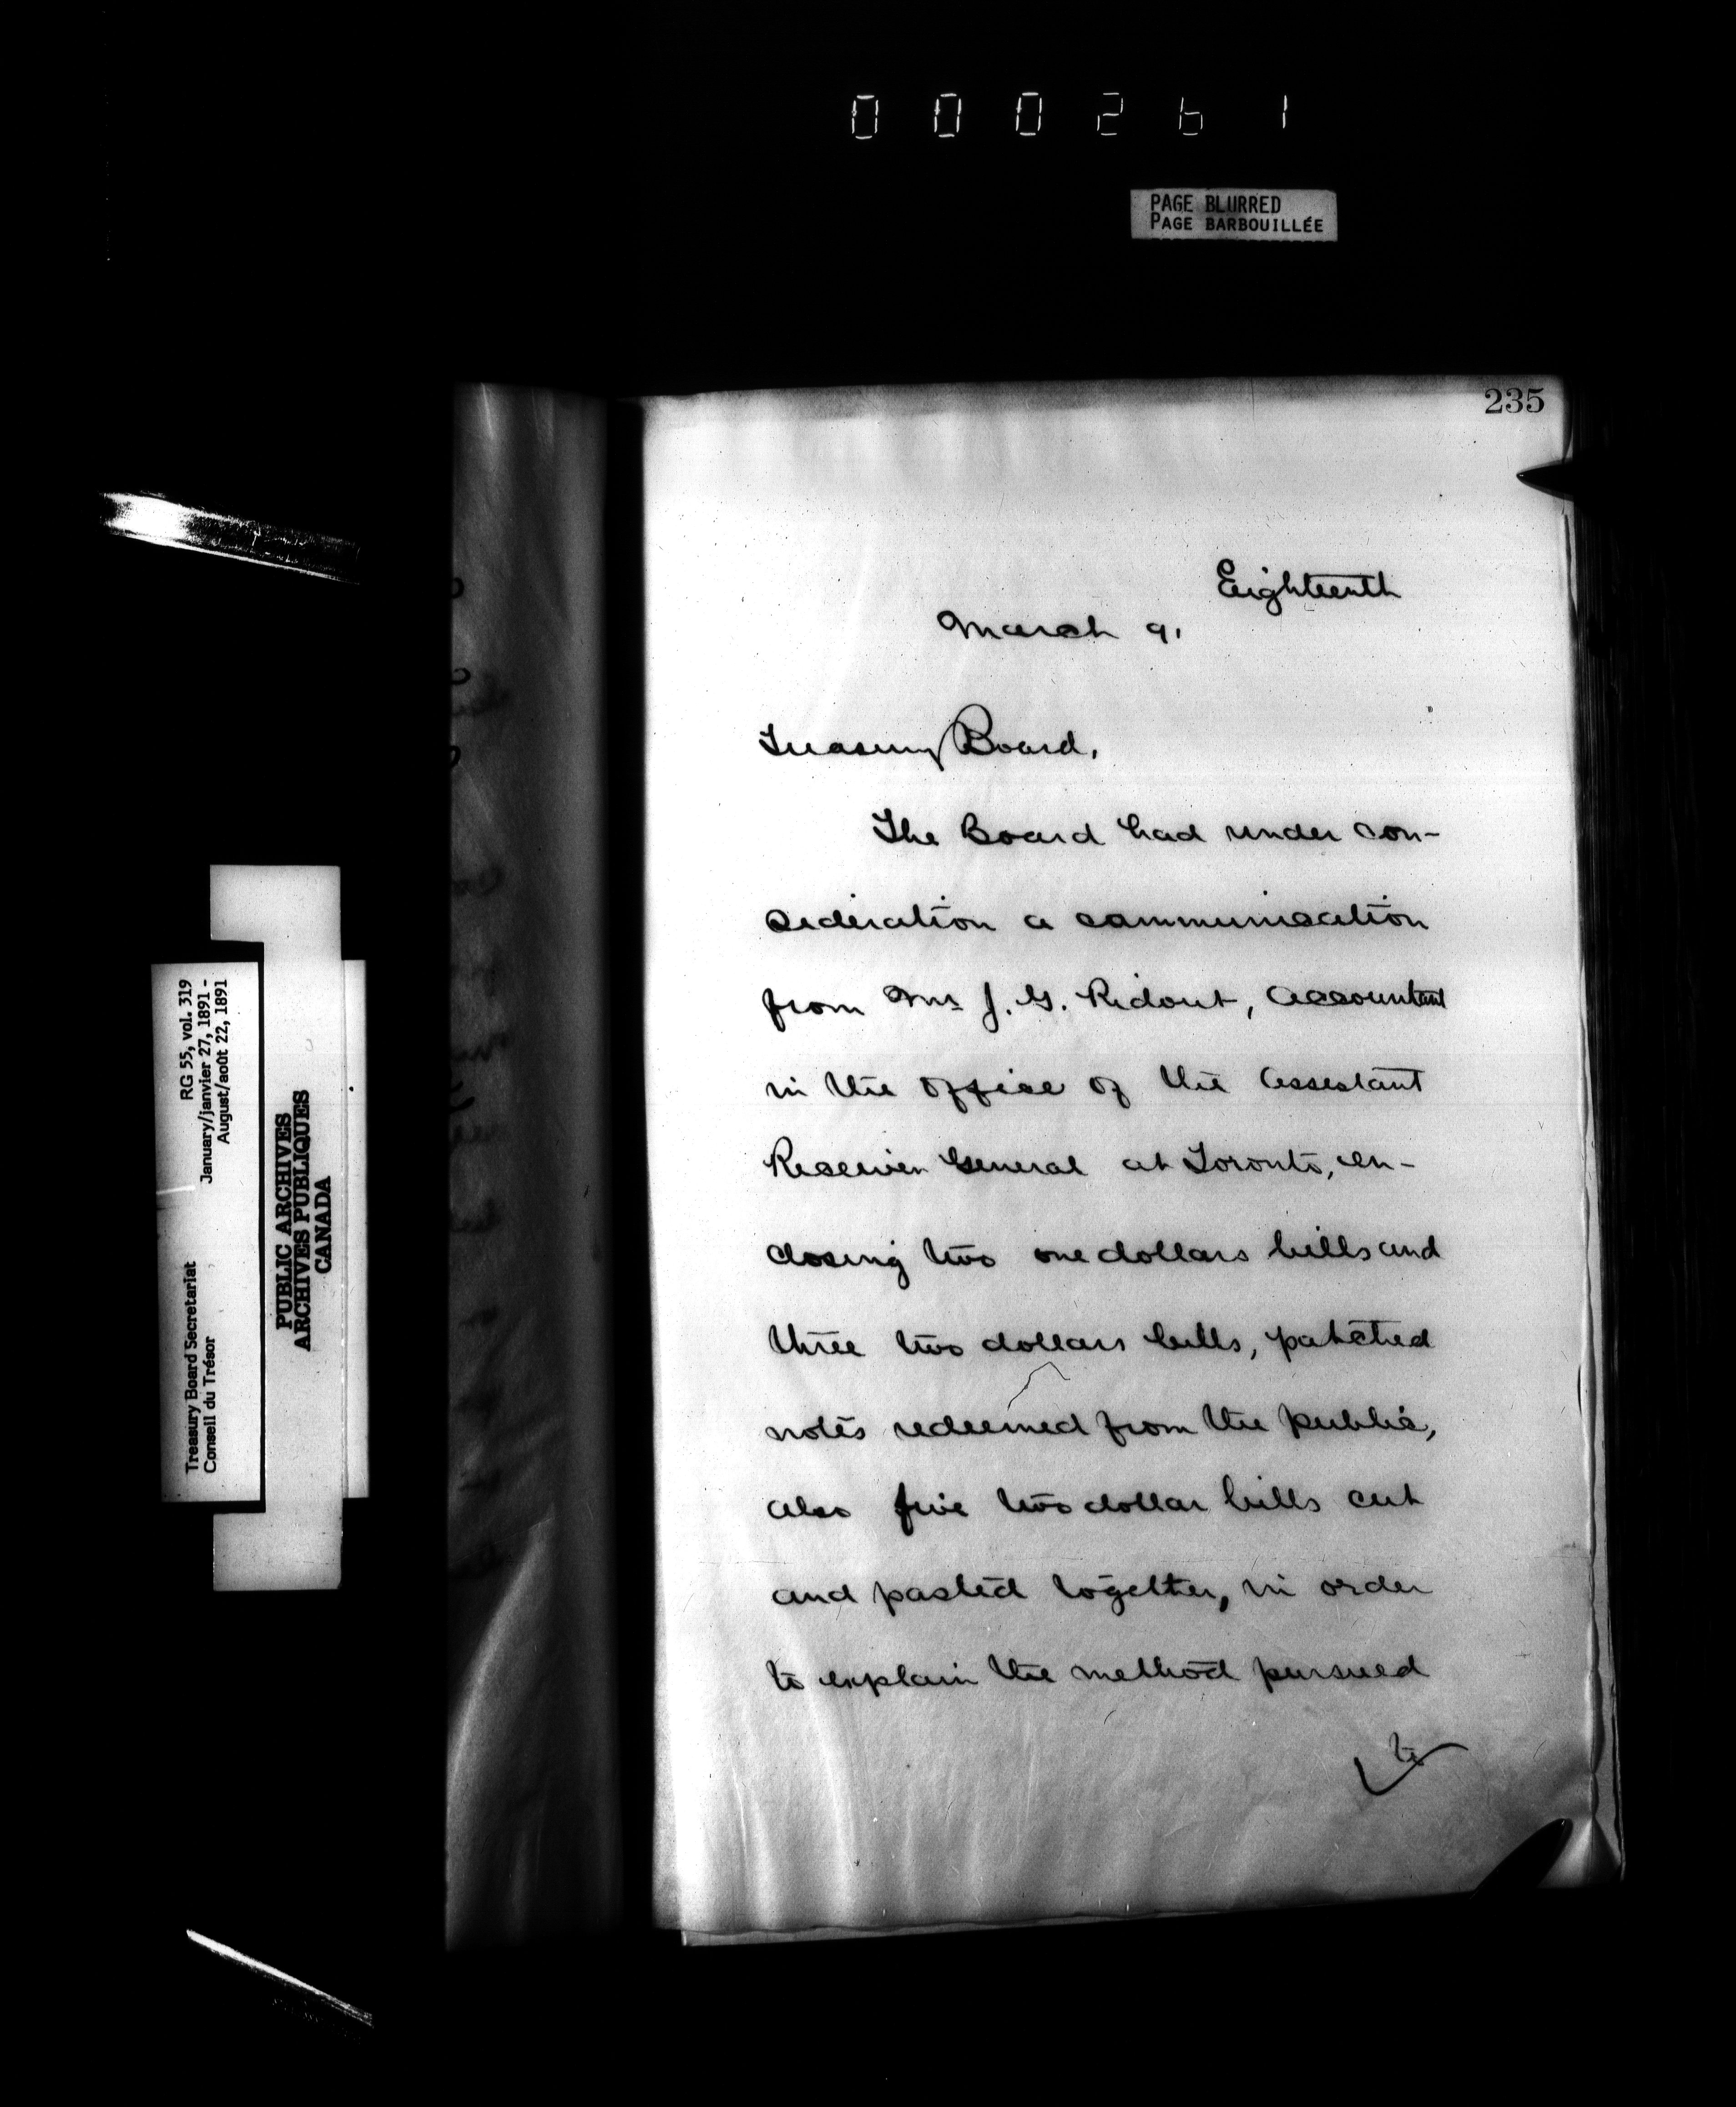 000261
PAGE BLURRED
PAGE BARBOUILLÉE
235
Eighteenth
March 91
Treasury Board,
The Board had under con-
sideration a communication
from Mr J. G. Ridout, Accountant
in the office of the Assistant
Receiver General at Toronto, en-
closing two one dollars bills and
three two dollars bills, patched
notes redeemed from the public,
also five two dollar bills cut
and pasted together, in order
to explain the method pursued
to
RG 55, vol. 319
January/janvier 27, 1891 -
August/août 22, 1891
Treasury Board Secretariat
Conseil du Trésor
PUBLIC ARCHIVES
ARCHIVES PUBLIQUES
CANADA